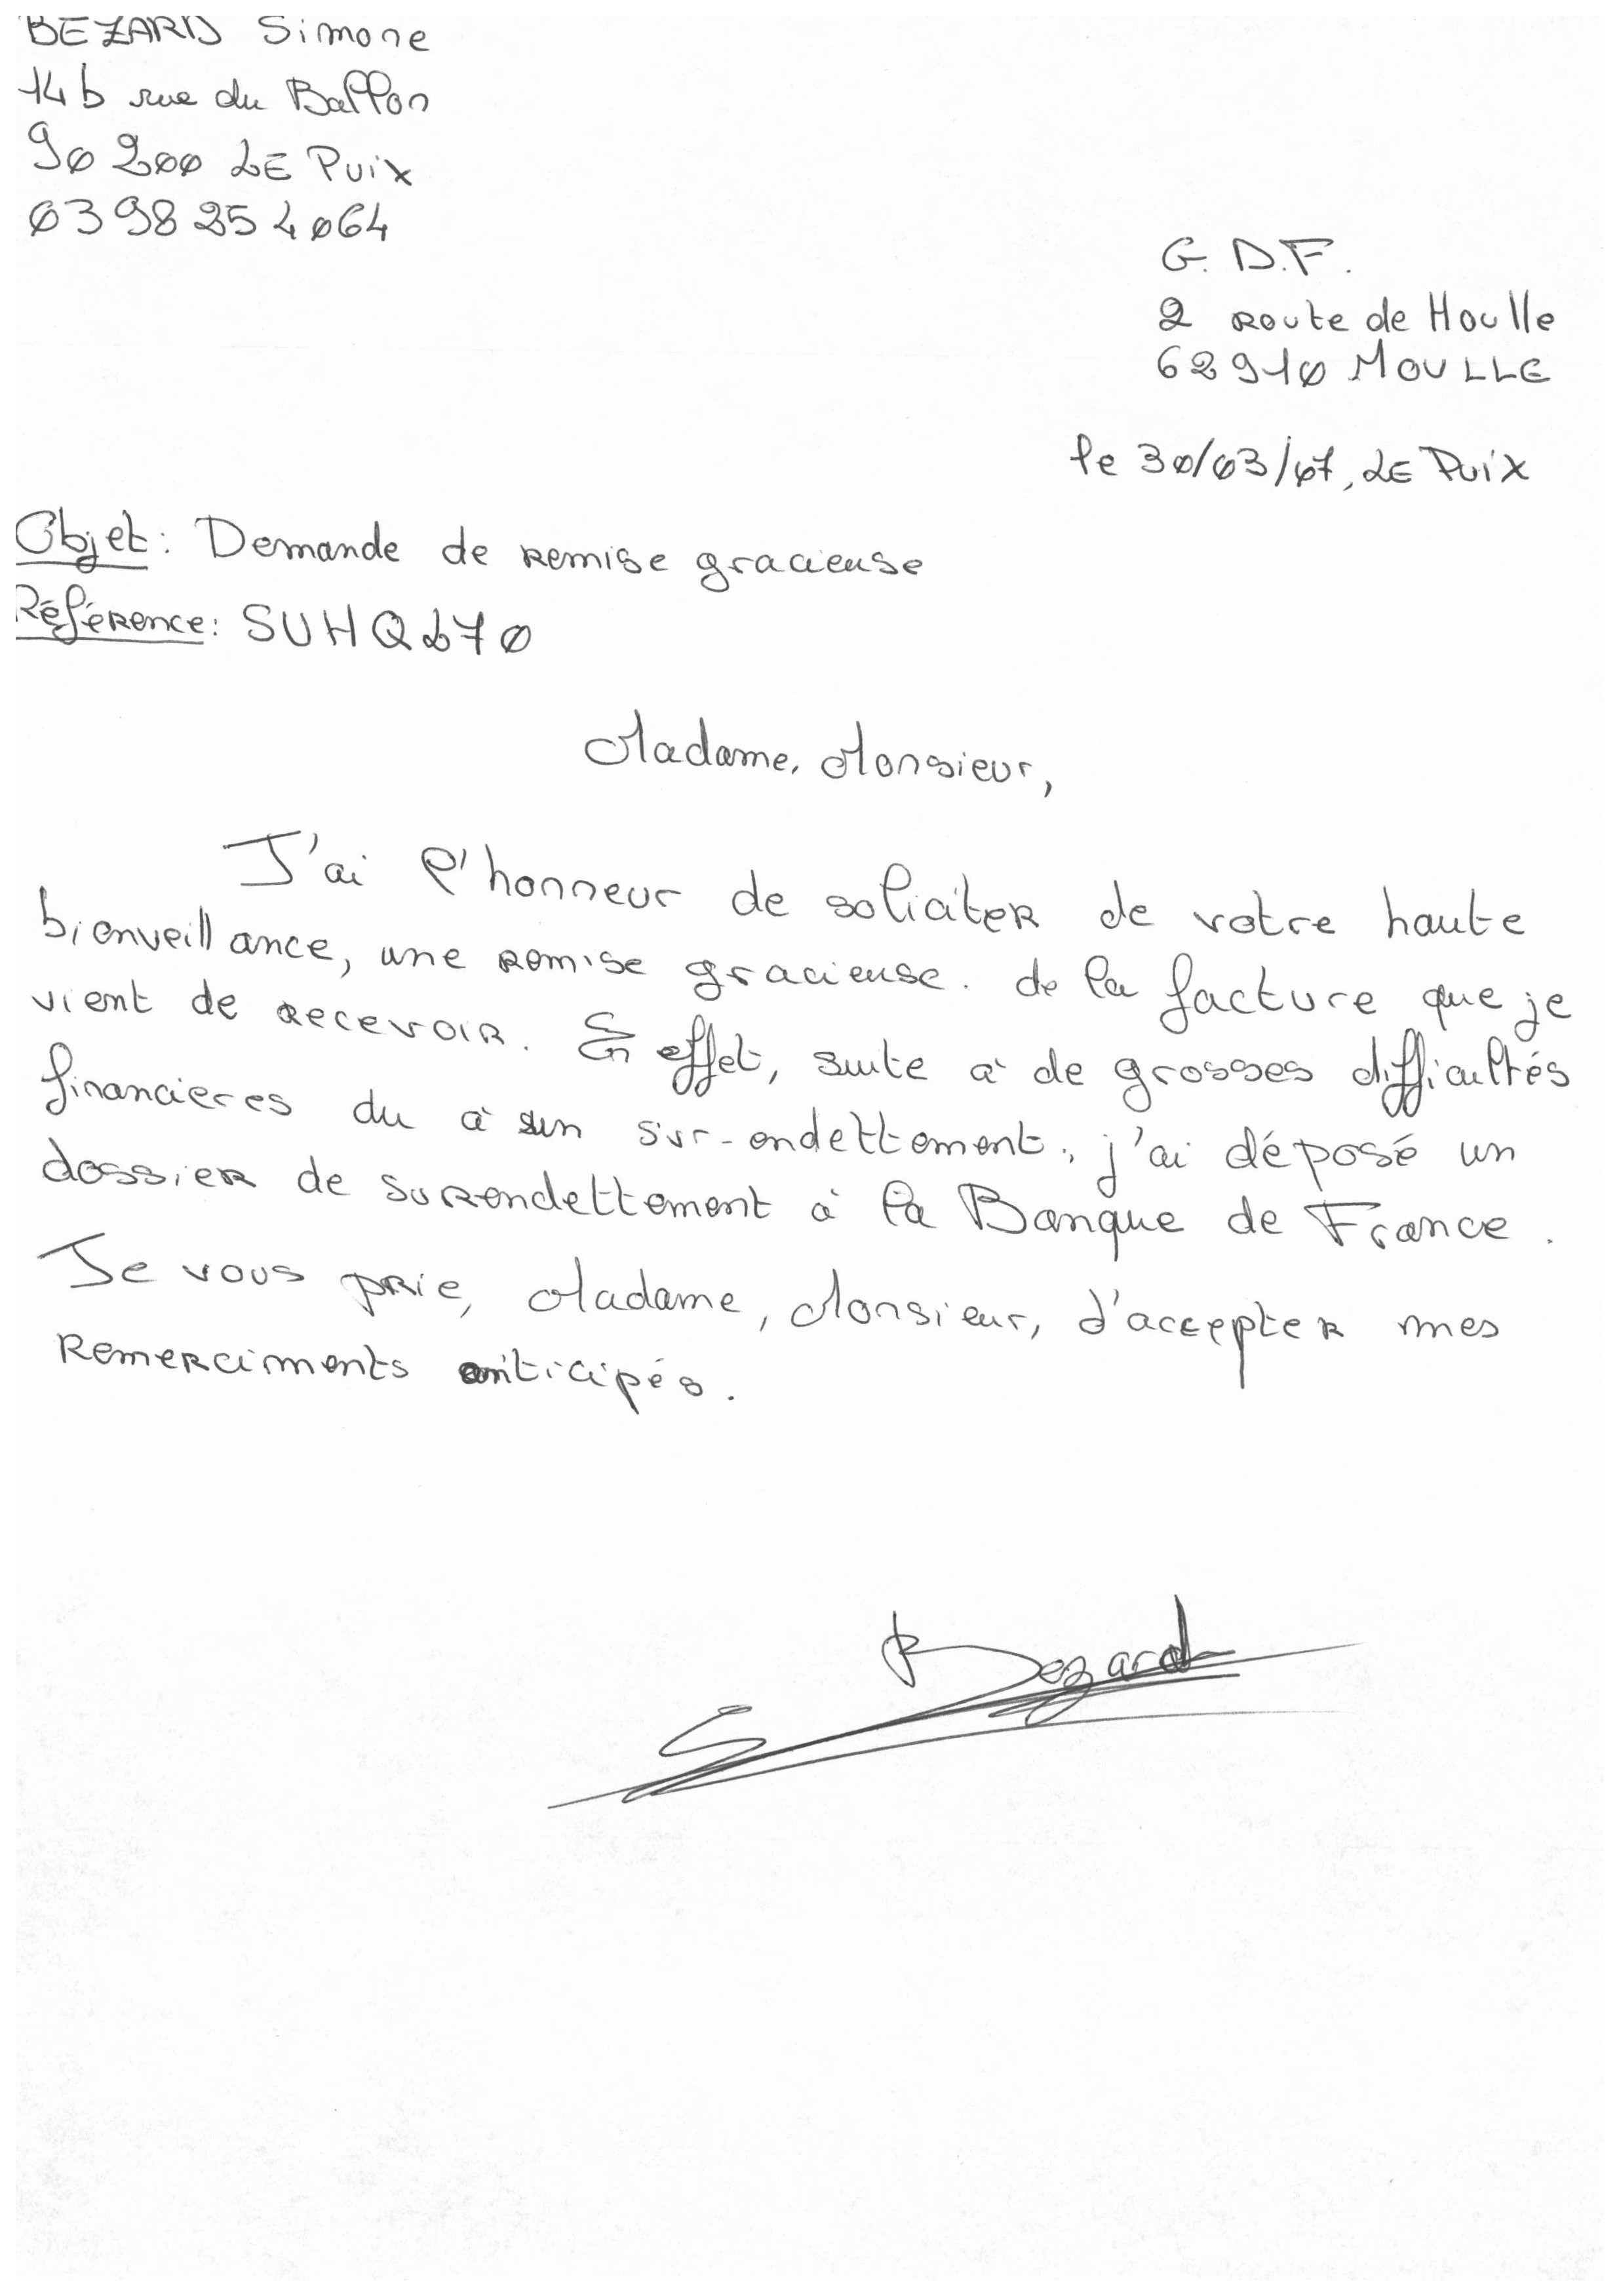 BEZARD Simone
14b rue du Ballon
90200 LE Puix
0398254064
G.D.F.
2 Route de Houlle
62910 MOULLE
le 30/03/07, LE Puix
Objet: Demande de remise gracieuse
Référence: SUHQL70
Madame, Monsieur,
J'ai l'honneur de soliciter de votre haute
bienveillance, une remise gracieuse. de la facture que je
vient de recevoir. En effet, suite à de grosses difficultés
financieres du à un sur-endettement, j'ai déposé un
dossier de surendettement à la Banque de France.
Je vous prie, Madame, Monsieur, d'accepter mes
remerciments anticipés.
S Bezard